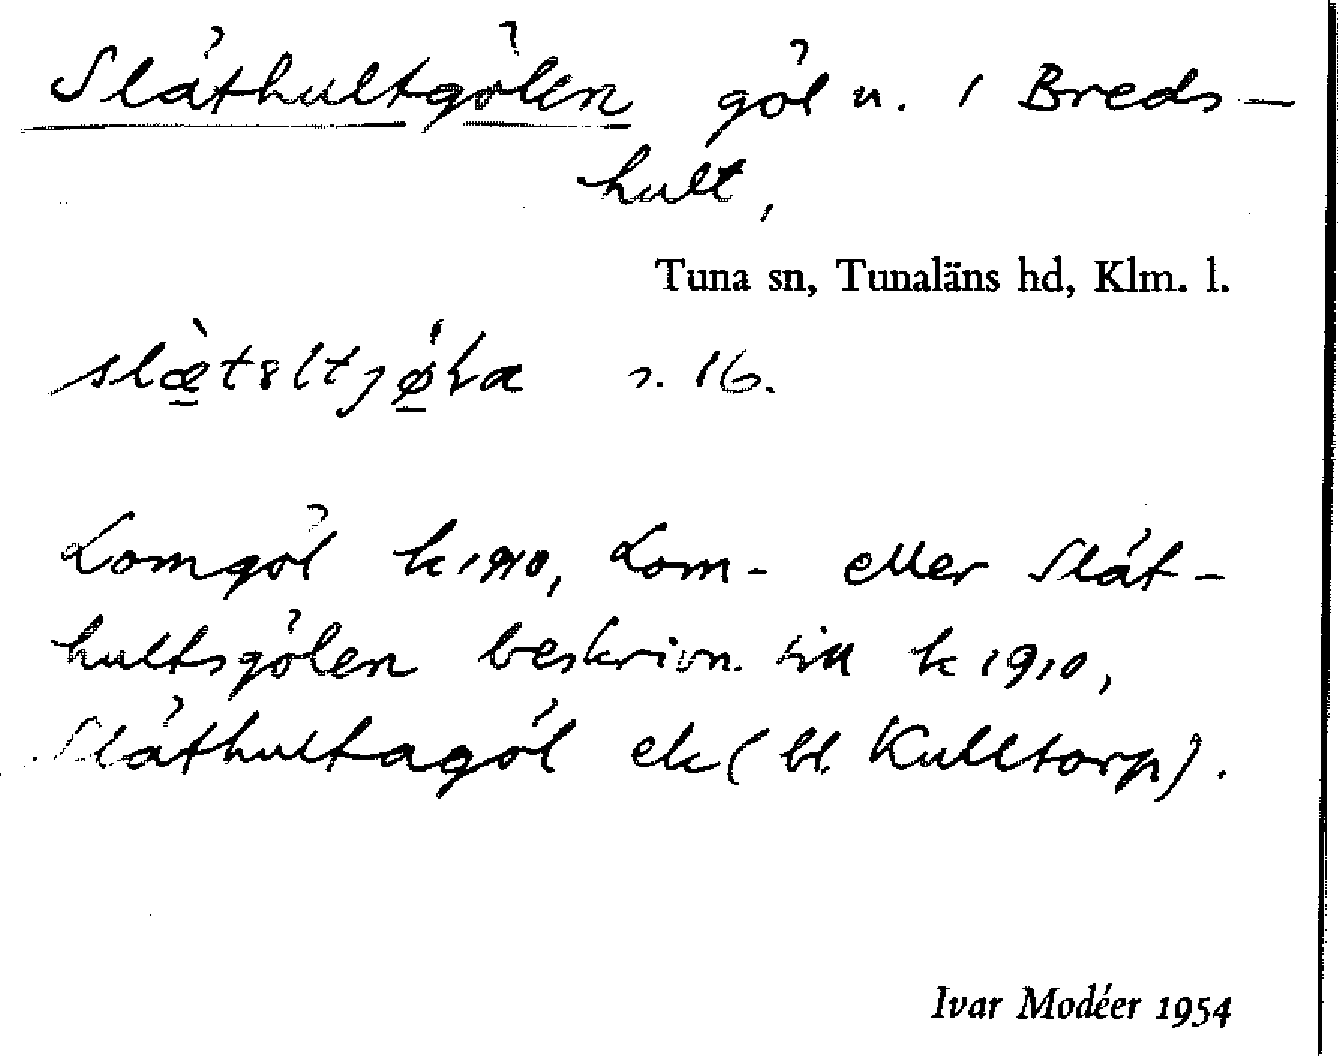 Släthultgölen göl n. i Breds-
hult,
Tuna sn, Tunaläns hd, Klm. l.
s. 16.
Lomgöl k 1910, Lom- eller Slät-
hultsgölen beskrivn. till k 1910,
Släthultagöl ek (bl. Kulltorp).
Ivar Modéer 1954